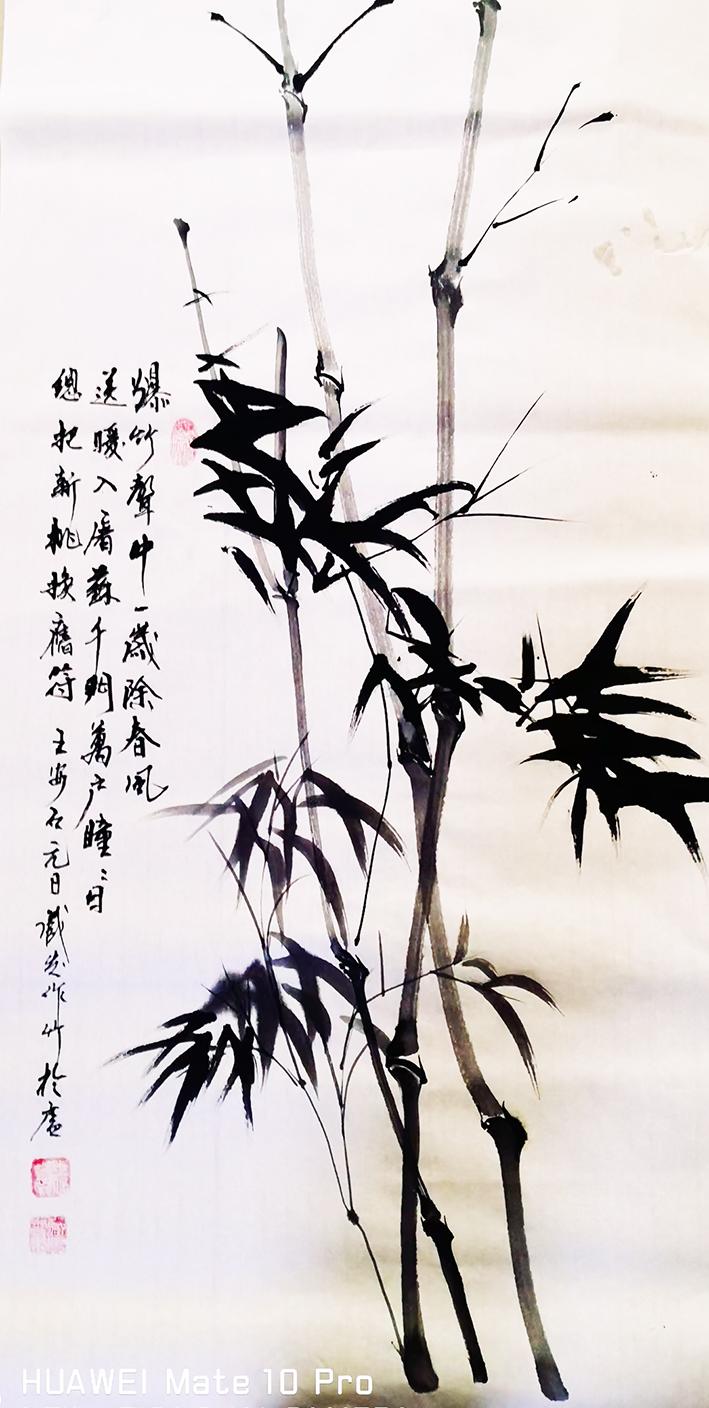 爆竹聲中一歲除春風
送暖入屠蘇千門萬户瞳々日
總把新桃換舊符 王安石元日 作竹於
HUAWEI Mate 10 Pro